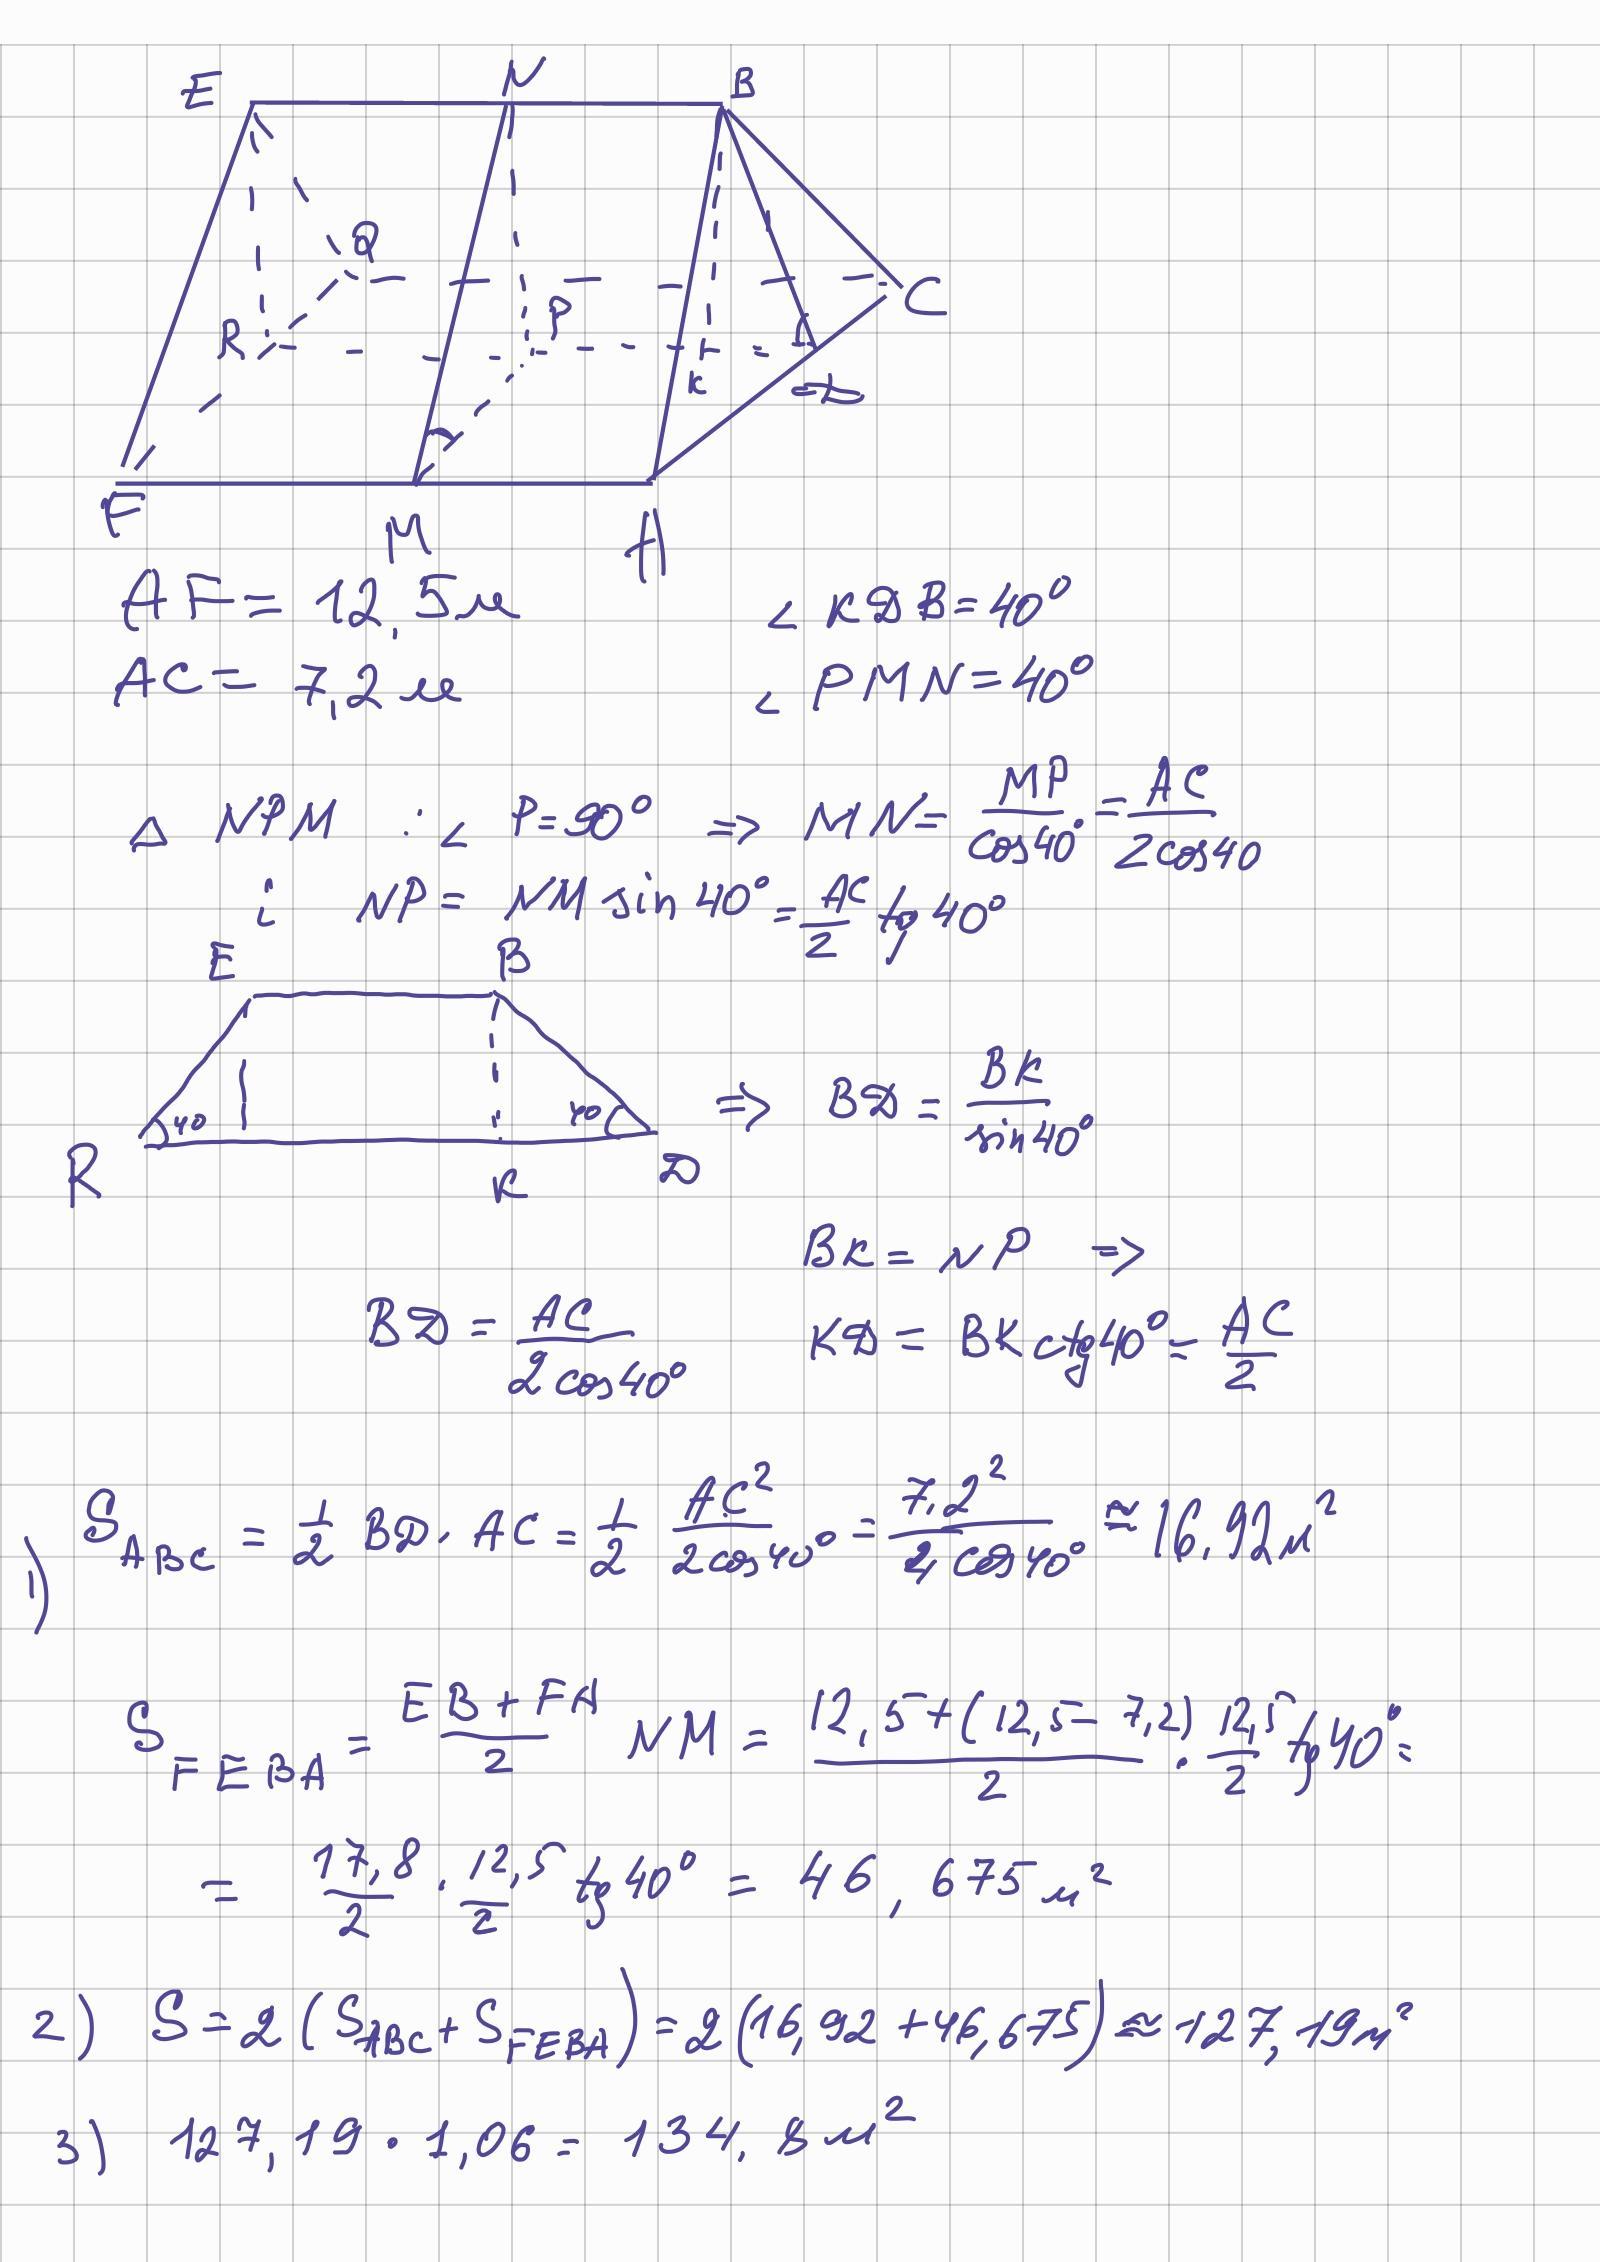 E N B
Q
R P C
K D
F M A
AF = 12,5 м ∠ KDB = 40⁰
AC = 7,2 м ∠ PMN = 40⁰
△ NPM : ∠ P = 90⁰ => MN = MP/cos40° = AC/2cos40
: NP = NM sin 40⁰ = AC/2 tg 40⁰
E B
40 40 => BD = BK/sin40⁰
R K D
BK = NP =>
BD = AC/2cos40⁰ KD = BK ctg40⁰ = AC/2
1) S ABC = 1/2 BD · AC = 1/2 AC²/2cos40⁰ = 7,2²/4 cos40⁰ ≈ 16,92 м²
S FEBA = EB + FA/2 NM = 12,5 + (12,5 - 7,2)/2 · 12,5/2 tg40⁰ =
= 17,8/2 · 12,5/2 tg 40⁰ = 46,675 м²
2) S = 2 (S ABC + S FEBA) = 2 (16,92 + 46,675) ≈ 127,19 м²
3) 127,19 · 1,06 = 134,8 м²